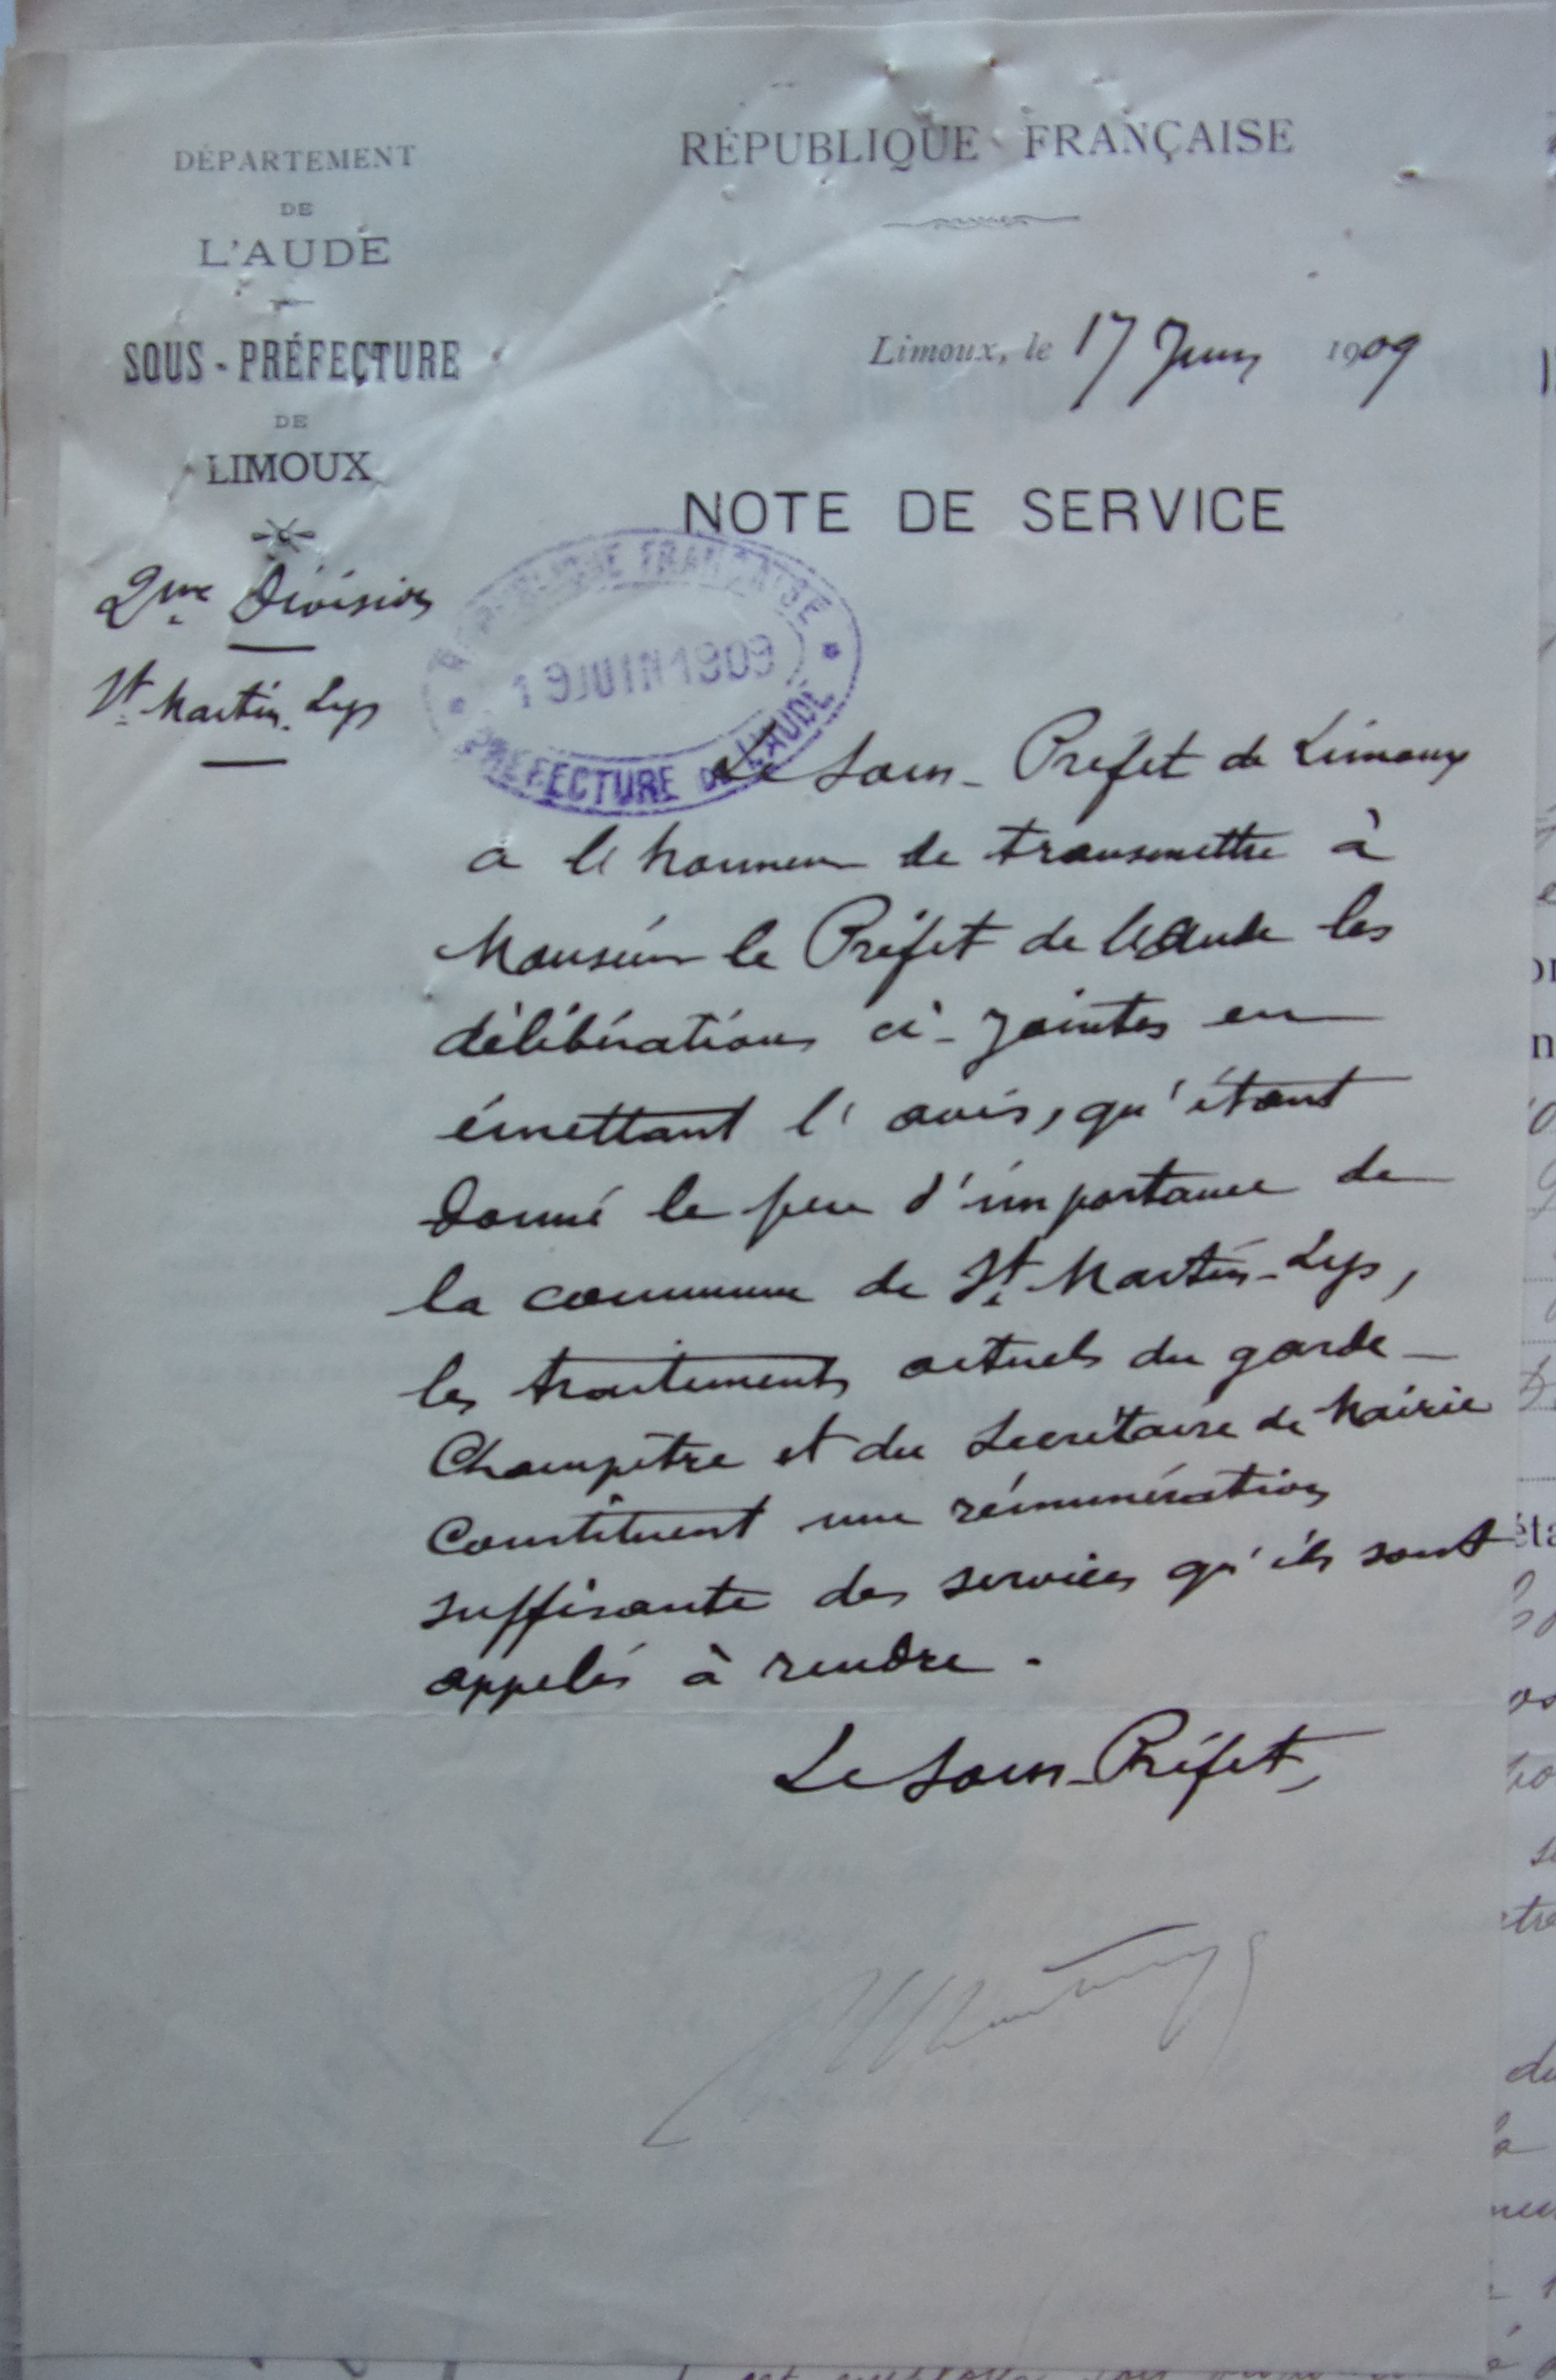 DÉPARTEMENT
DE
L'AUDE
SOUS-PRÉFECTURE
DE
LIMOUX
2me Division
St Martin-Lys
RÉPUBLIQUE FRANÇAISE
Limoux, le 17 Juin 1909
NOTE DE SERVICE
RÉPUBLIQUE FRANÇAISE
19 JUIN 1909
PRÉFECTURE DE L'AUDE
Le Sous-Préfet de Limoux
a l'honneur de transmettre à
Monsieur le Préfet de l'Aude les
délibérations ci-jointes en
émettant l'avis, qu'étant
donné le peu d'importance de
la commune de St Martin-Lys,
les traitements actuels du garde-
Champêtre et du Secrétaire de Mairie
constituent une rémunération
suffisante des services qu'ils sont
appelés à rendre.
Le Sous-Préfet,